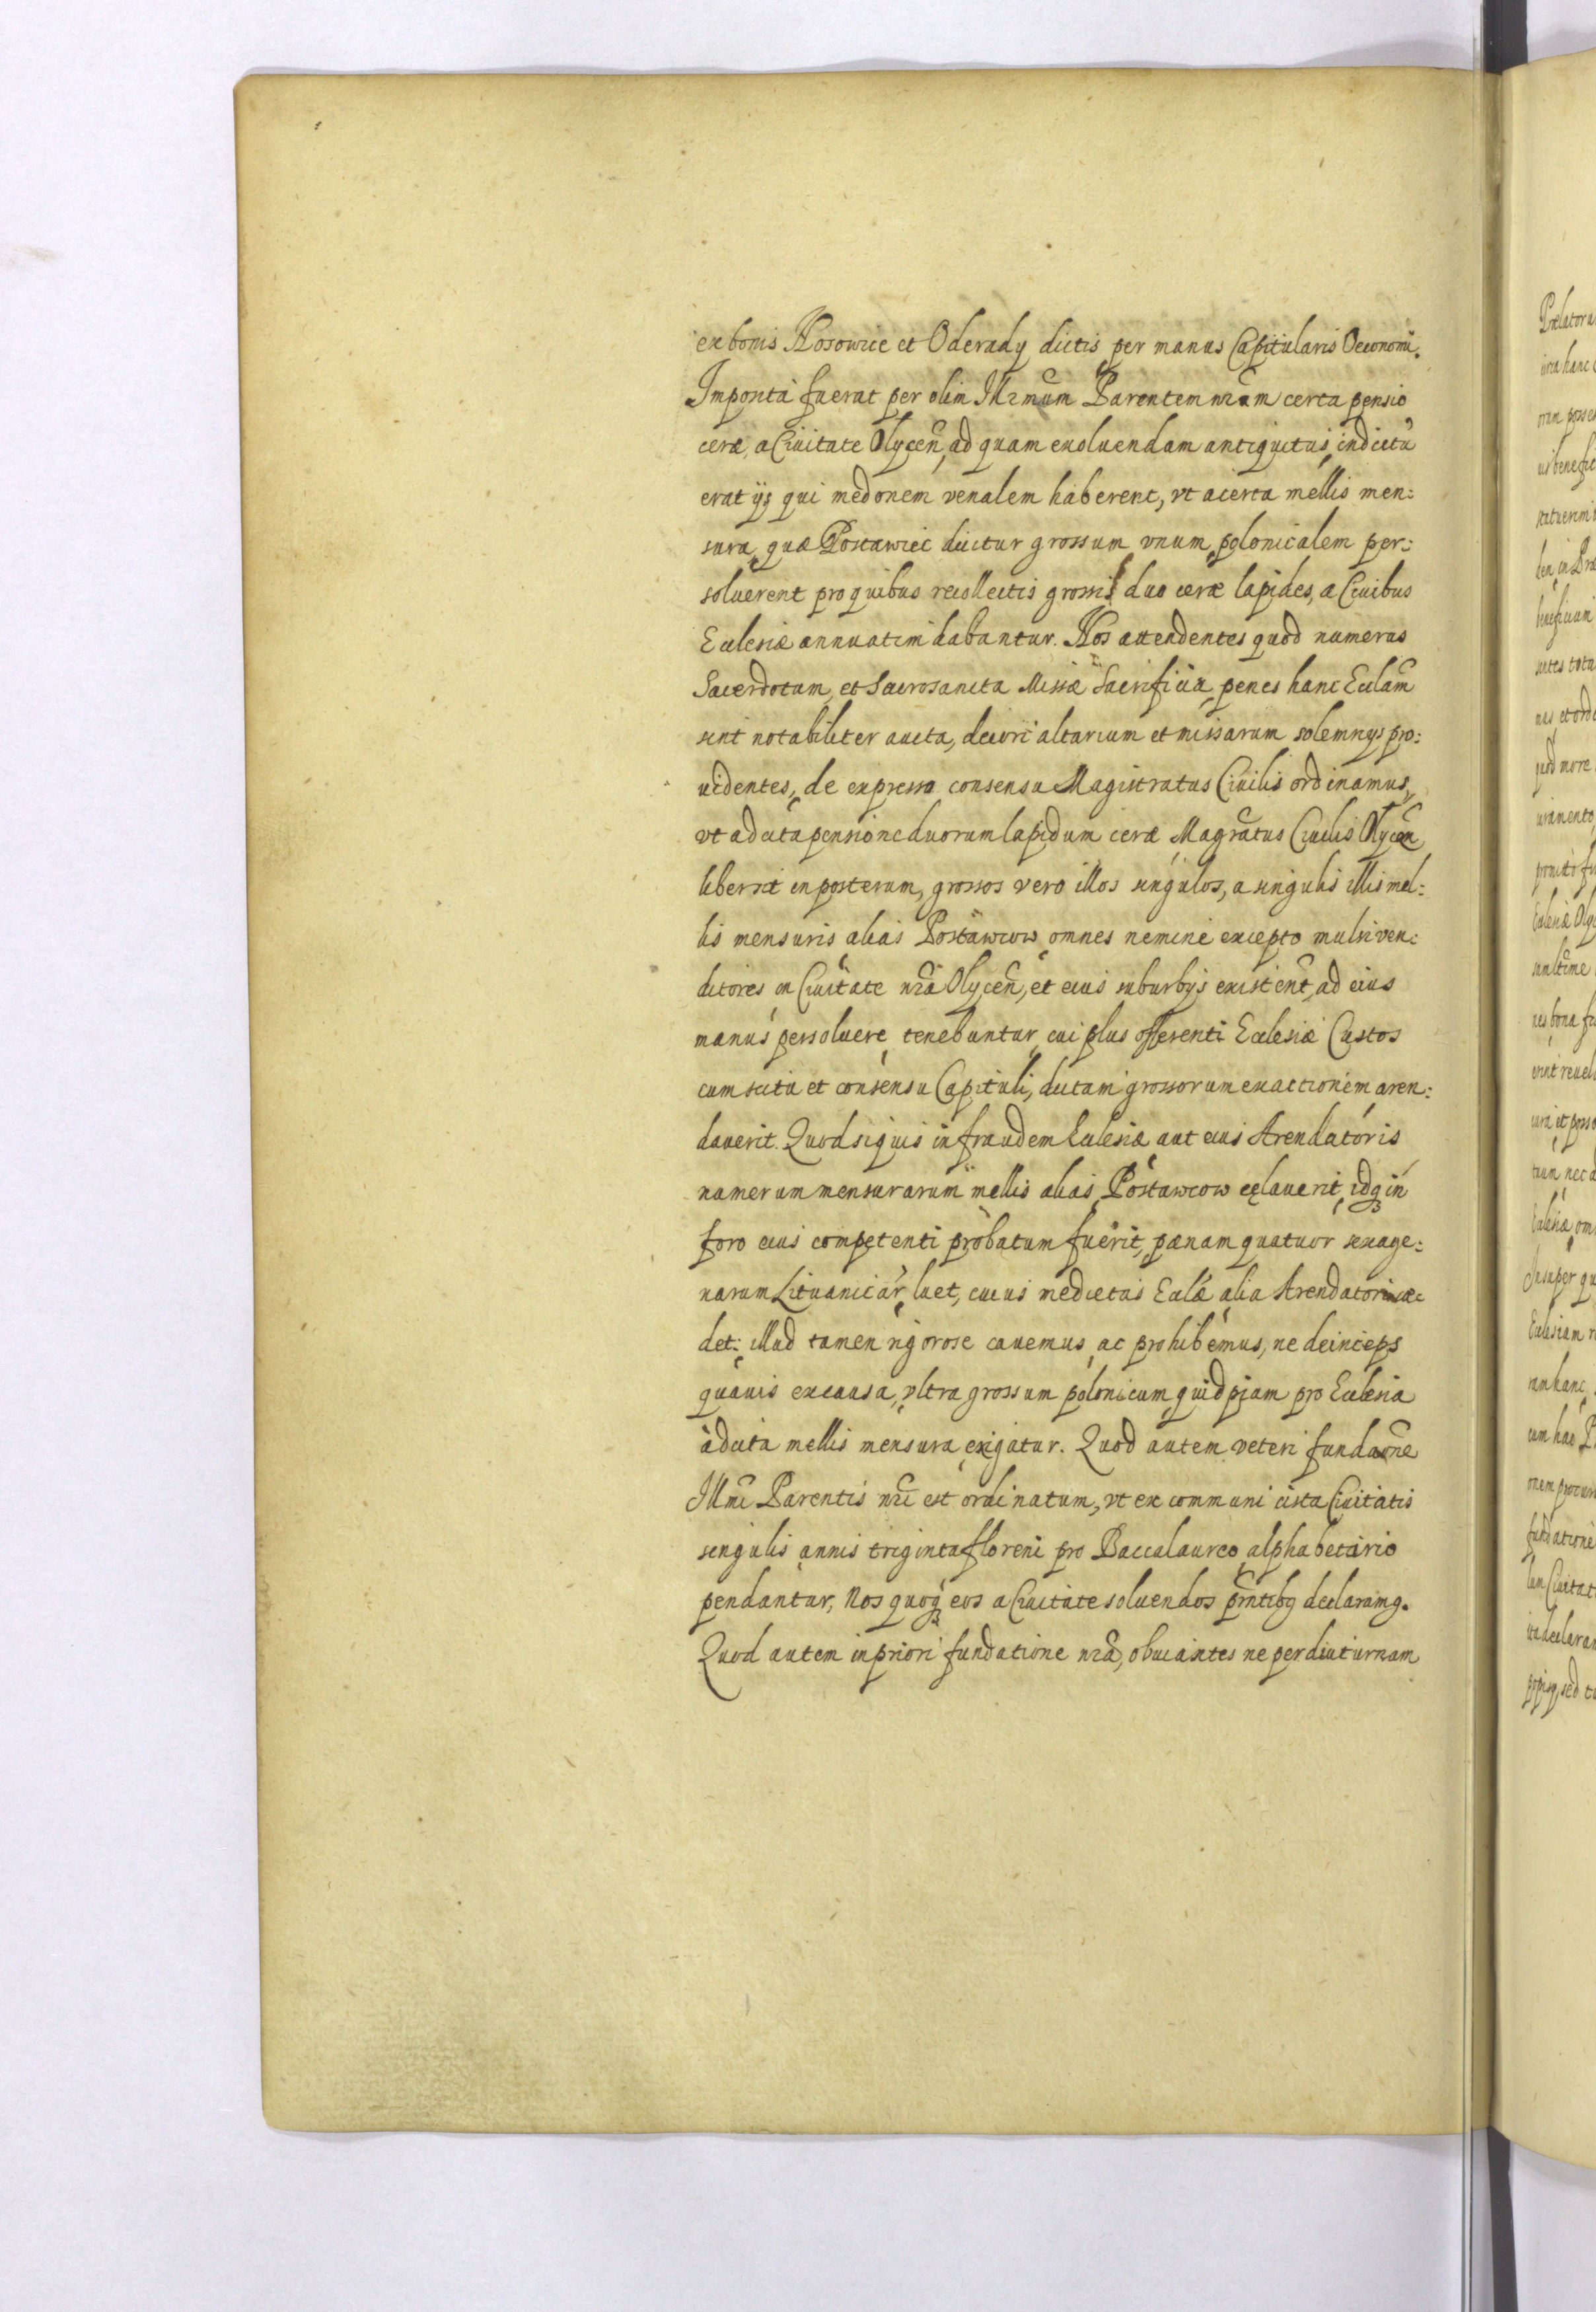 ex bonis Nosowice et Oderady dictis per manus Capitularis Oeconomi.
Imposita fuerat per olim Illrmum Parentem nrum certa pensio
ceræ, a Ciuitate Olycen, ad quam exoluendam antiquitus indictū
erat ijs qui medonem venalem haberent, vt a certa mellis men:
sura, quæ Postawiec dicitur grossum vnum polonicalem per:
soluerent pro quibus recollectis grossis duo ceræ lapides, a Ciuibus
Ecclesiæ annuatim dabantur. Nos attendentes quod numerus
Sacerdotum, et Sacrosancta Missæ Sacrificia, penes hanc Ecclam
sint notabiliter aucta, decori altarium et missarum solemnijs pro:
uidentes, de expresso consensu Magistratus Ciuilis ordinamus,
vt a dicta pensione duorum lapidum ceræ Magratus Ciuilis Olycen
liber sit in posterum, grossos vero illos singulos, a singulis illis mel:
lis mensuris alias Postawcow omnes nemine excepto mulsi ven:
ditores in Ciuitate nra Olycen, et eius suburbijs existent, ad eius
manus persoluere tenebuntur, cui plus offerenti Ecclesiæ Custos
cum scitu et consensu Capituli, dictam grossorum exactionem aren:
dauerit. Quod siquis in fraudem Ecclesiæ aut eius Arendatoris
numerum mensurarum mellis alias Postawcow celauerit, idq in
foro eius competenti probatum fuerit, pænam quatuor sexage:
narum Lituanicar luet, cuius medietas Eccłæ alia Arendatori ce:
det: illud tamen rigorose cauemus, ac prohibemus, ne deinceps
quauis ex causa, vltra grossum polonicum quidpiam pro Ecclesia
a dicta mellis mensura exigatur. Quod autem veteri fundaōne
Illmi Parentis nri est ordinatum, vt ex communi cista Ciuitatis
singulis annis triginta floreni pro Baccalaureo alphabetario
pendantur, Nos quoq eos a Ciuitate soluendos prntibg declaramg.
Quod autem in priori fundatione nra, obuiantes ne per diuturnam